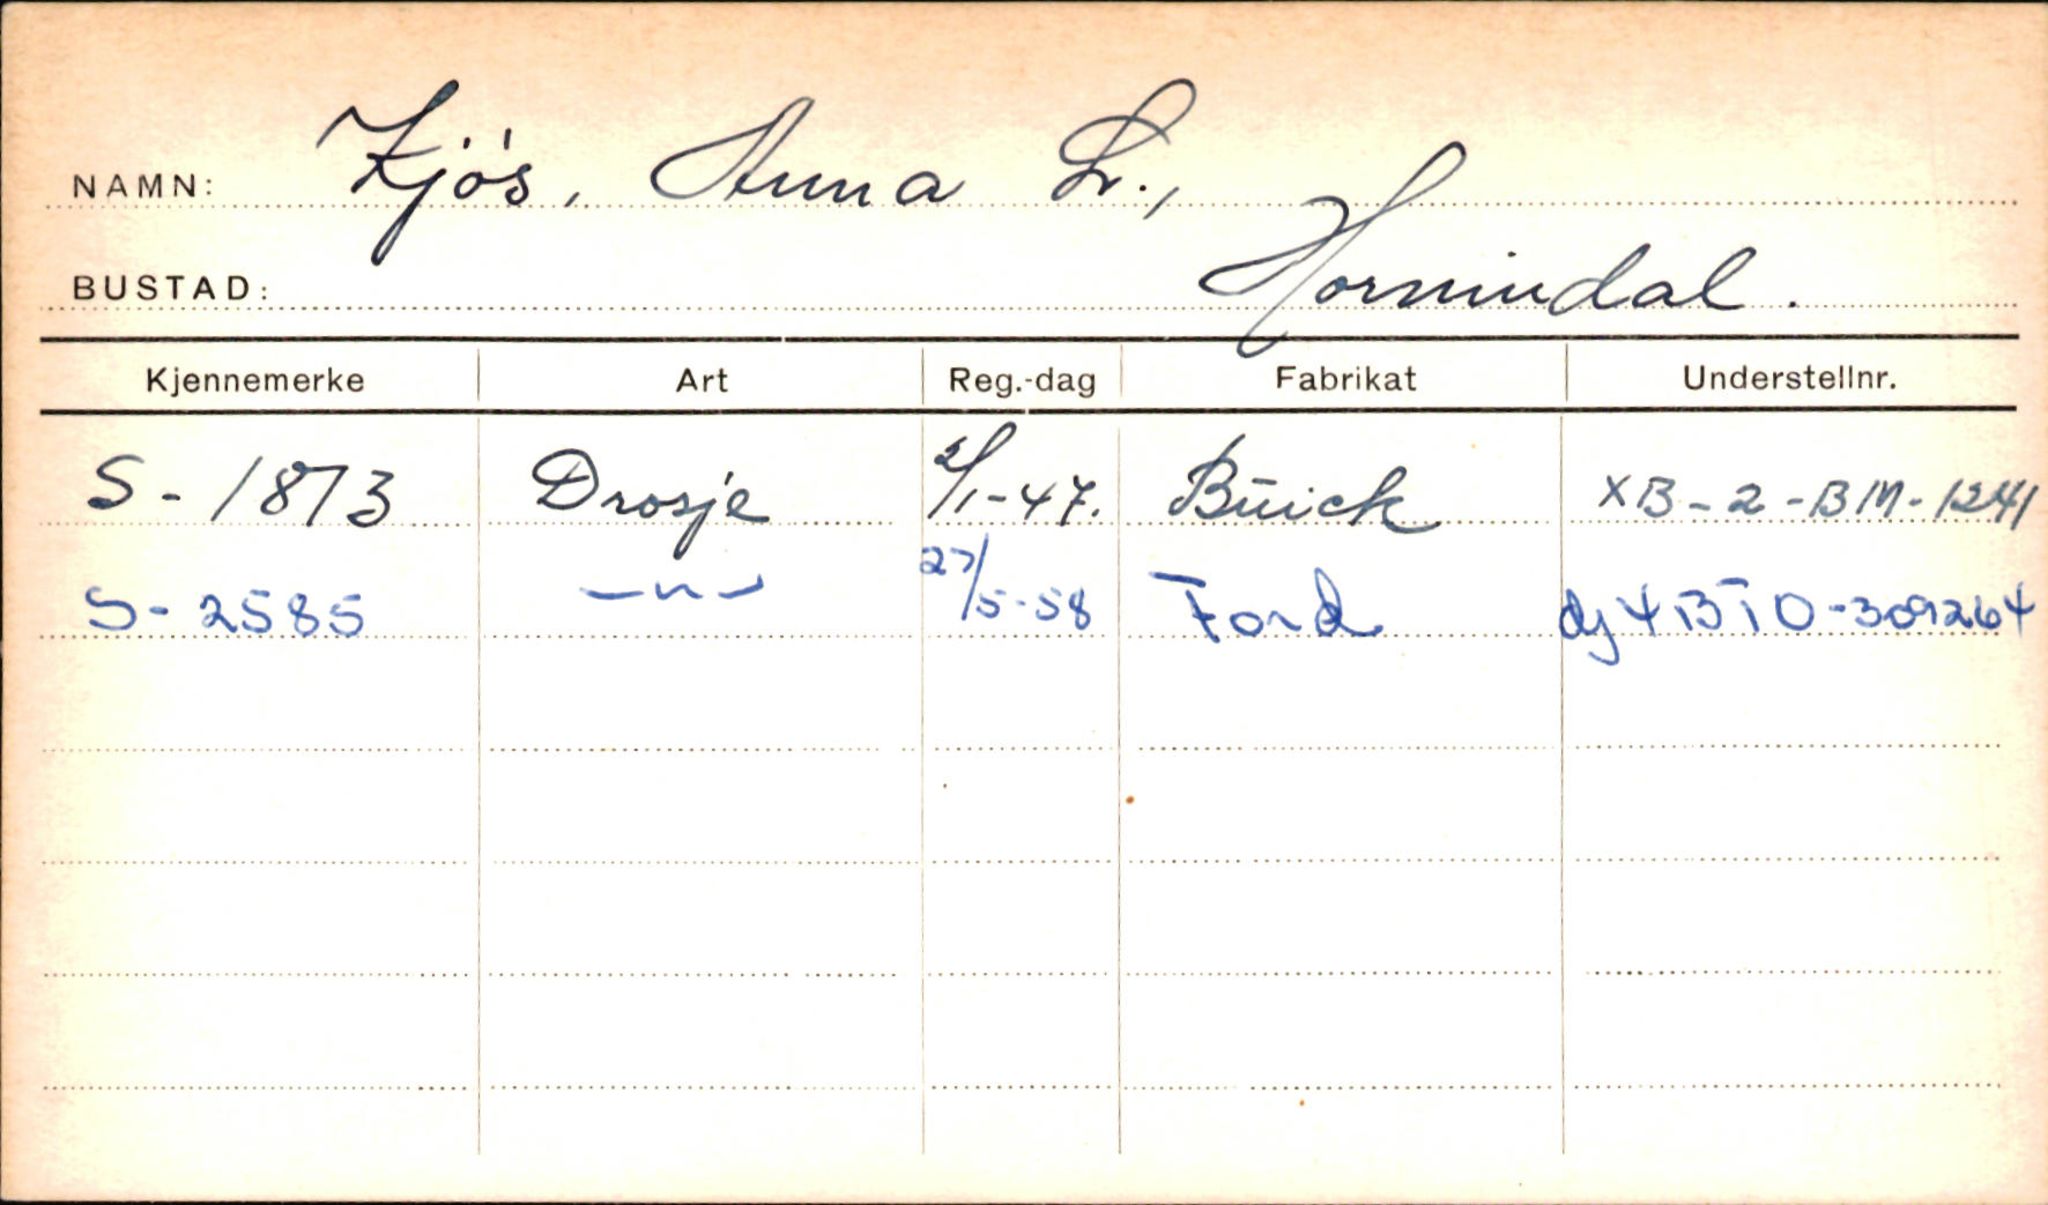 NAMN: Kjós, Anna Lr.,
BUSTAD: Hornindal.
Kjennemerke Art Reg.-dag Fabrikat Understellnr.
S - 1873 Drosje 2/1-47. Buick XB - 2 - BM - 1241
S - 2585 —"— 27/5-58 Ford dj4BTO-309264